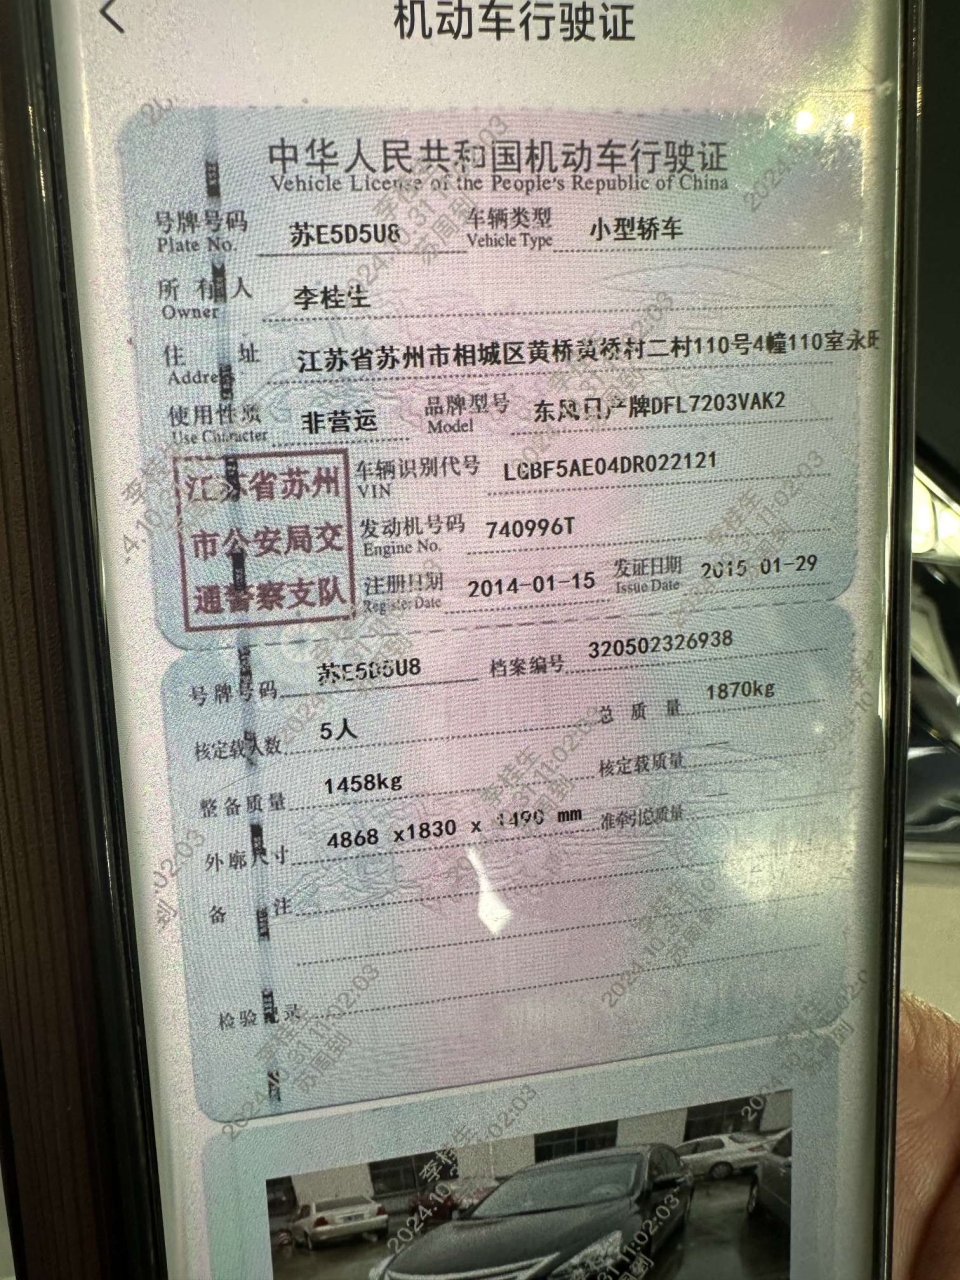 机动车行驶证
中华人民共和国机动车行驶证
Vehicle License of the People's Republic of China
号牌号码 苏E5D5U8 车辆类型 小型轿车
Plate No. Vehicle Type
所有人 李桂生
Owner
住址 江苏省苏州市相城区黄桥黄桥村二村110号4幢110室永旺
Address
使用性质 非营运 品牌型号 东风日产牌DFL7203VAK2
Use Character Model
江苏省苏州
市公安局交
通警察支队
车辆识别代号 LGBF5AE04DR022121
VIN
发动机号码 740996T
Engine No.
注册日期 2014-01-15 发证日期 2015-01-29
Register Date Issue Date
号牌号码 苏E5D5U8 档案编号 320502326938
核定载人数 5人 总质量 1870kg
整备质量 1458kg 核定载质量
外廓尺寸 4868 x1830 x 1490 mm 准牵引总质量
备注
检验记录
李桂生
2024.10.31 11:02:03
苏周到